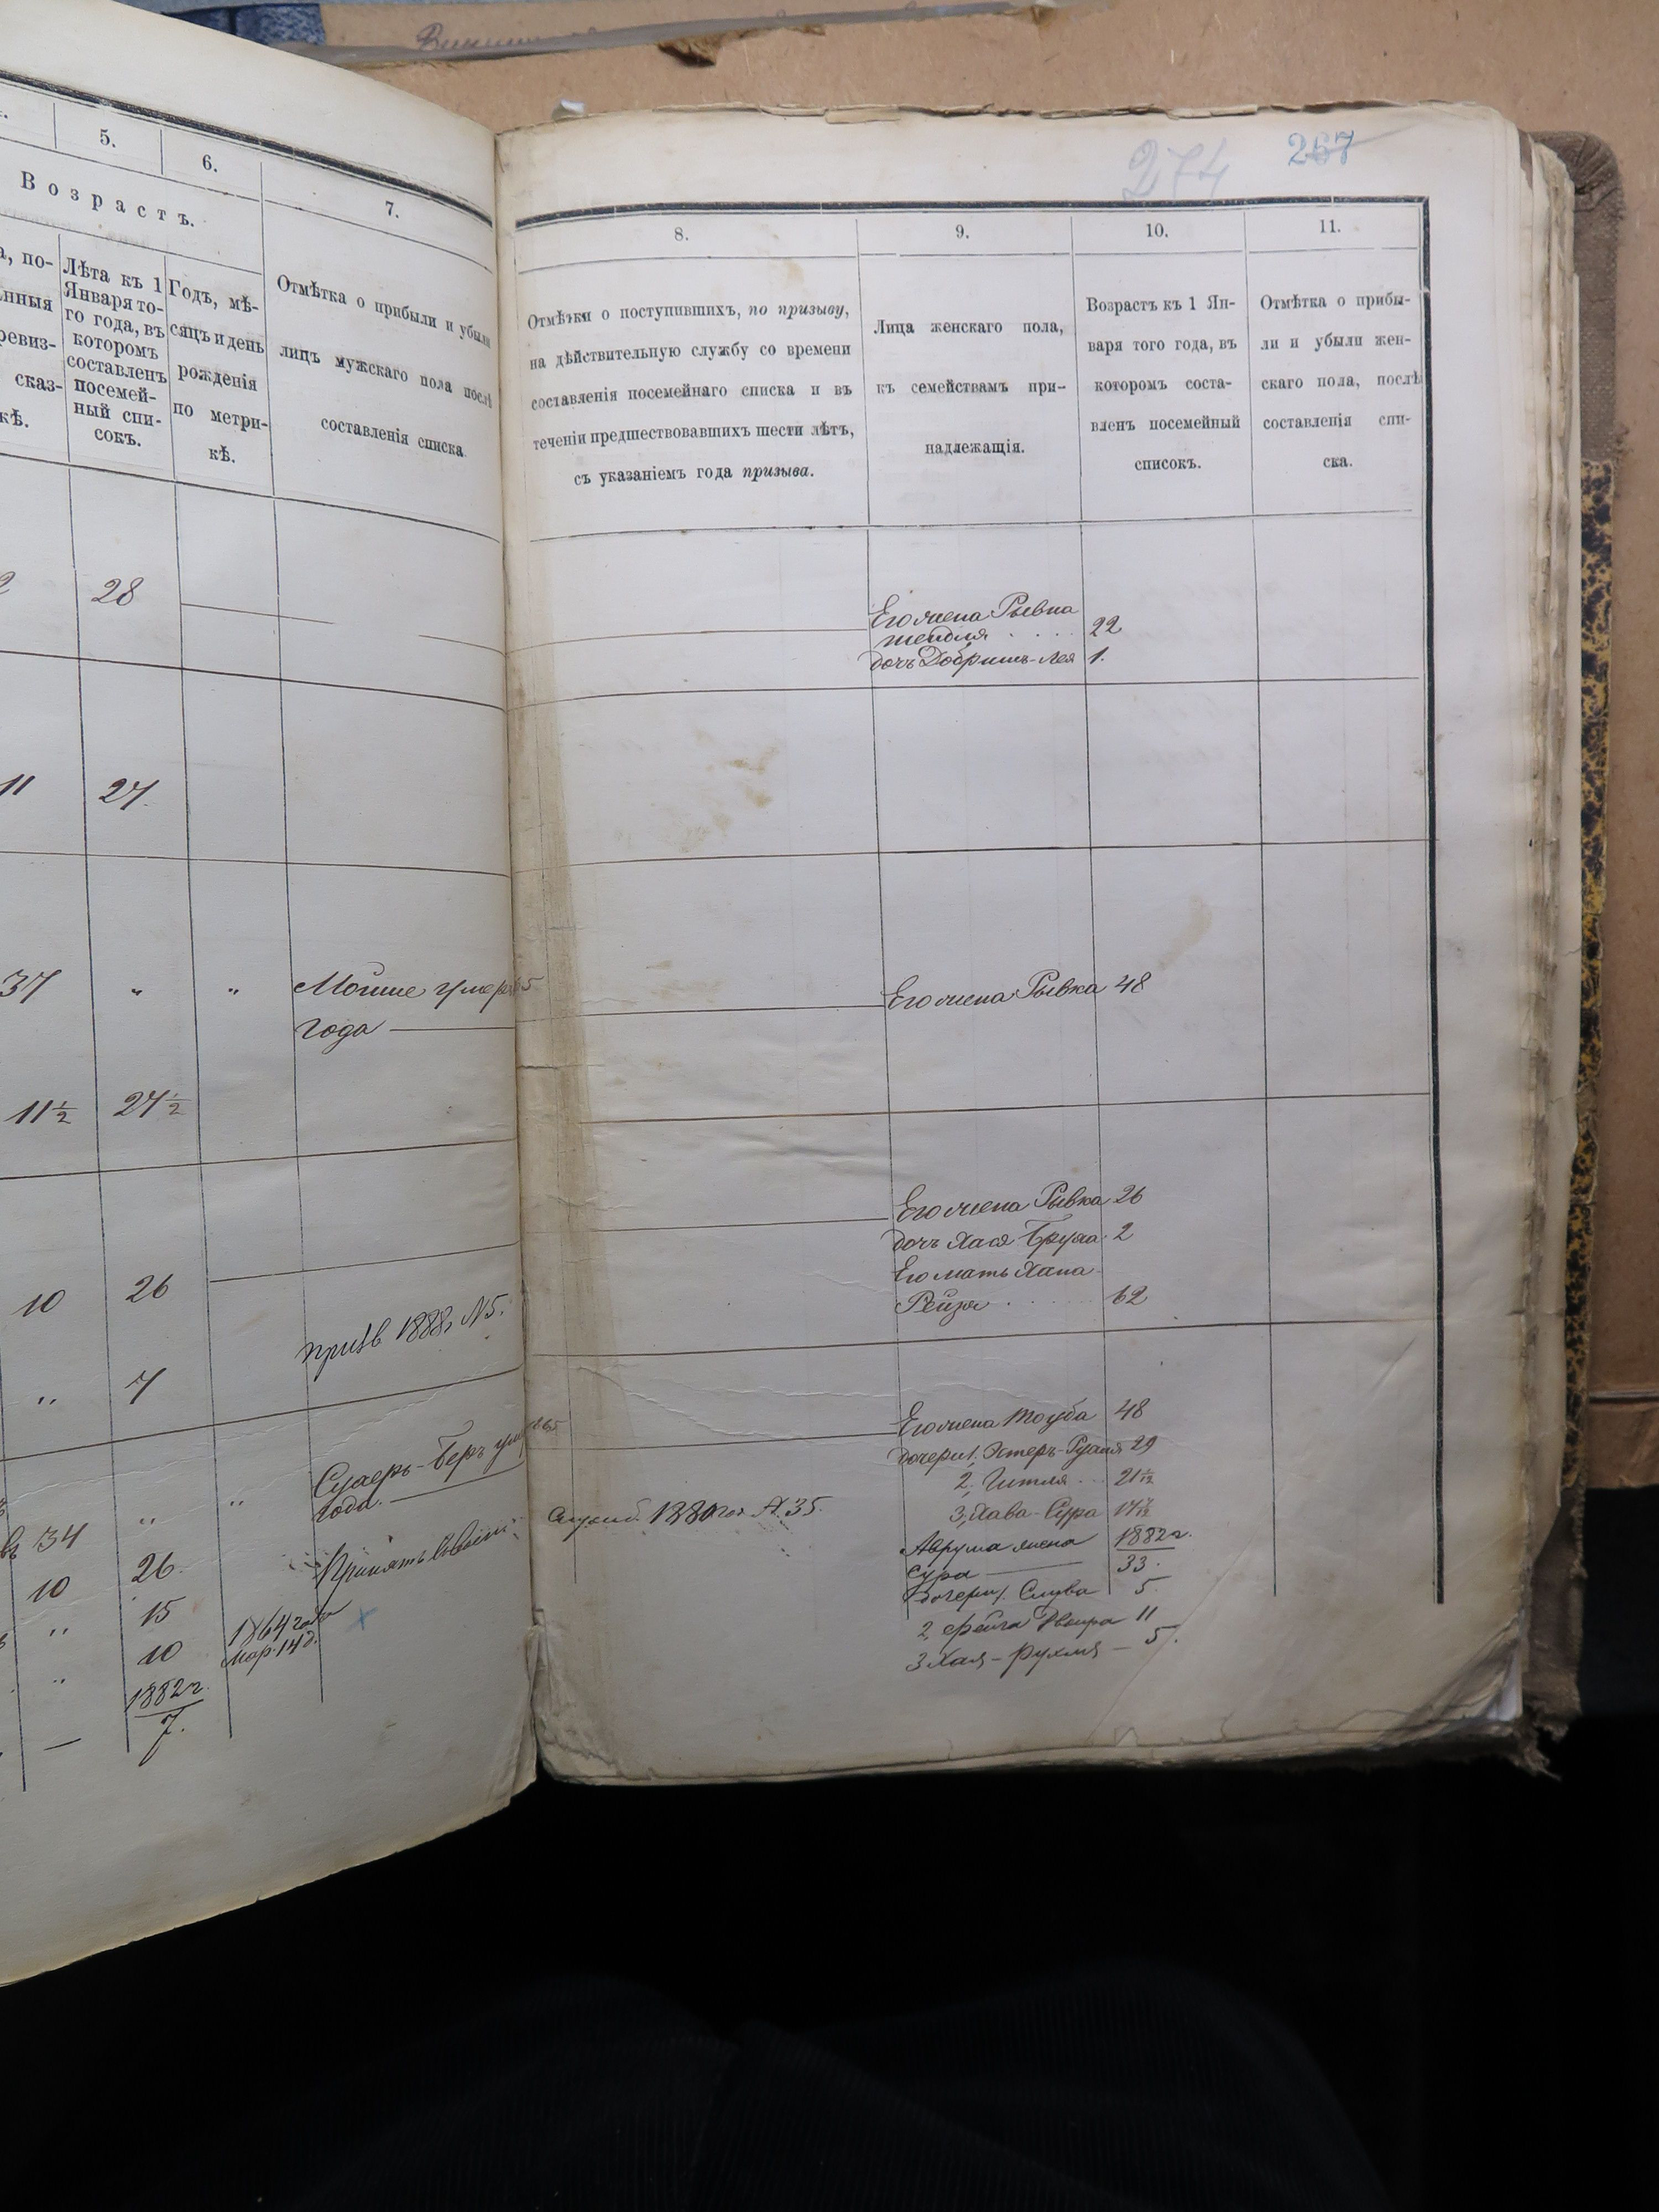 274 267
5.
6.
7.
Возрастъ.
а, по-
нныя
ревиз-
сказ-
кѣ.
Лѣта къ 1
Января то-
го года, въ
которомъ
составленъ
посемей-
ный спи-
сокъ.
Годъ, мѣ-
сяцъ и день
рожденія
по метри-
кѣ.
Отмѣтка о прибыли и убыли
лицъ мужскаго пола послѣ
составленія списка
28
11 27.
37 " " Мойше умеръ 65
года
11½ 27½
10 26
призв 1888г N5.
" 7
Сухеръ-Беръ ум 1865
34 " " года.
10 26. Принятъ
" 15 1864 года
" 10 мар. 14 д.
1882г.
— 7.
8.
9.
10.
11.
Отмѣтки о поступившихъ, по призыву,
на дѣйствительную службу со времени
составленія посемейнаго списка и въ
теченіи предшествовавшихъ шести лѣтъ,
съ указаніемъ года призыва.
Лица женскаго пола,
къ семействамъ при-
надлежащія.
Возрастъ къ 1 Ян-
варя того года, въ
которомъ соста-
вленъ посемейный
списокъ.
Отмѣтка о прибы-
ли и убыли жен-
скаго пола, послѣ
составленія спи-
ска.
Его жена Рывка
шендля . . . . 22
дочь Добришъ-Лея 1.
Его жена Рывка 48
Его жена Рывка 26
дочь Хася Бруха 2
Его мать Хана-
Рейза . . . 62
Его жена Тоуба 48
дочери 1, Эстеръ-Рухля 29
2, Гитля 21
3, Хава-Сура 17
1880 год N. 35.
Аврума жена 1882г.
Сура 33.
дочери 1. Слува 5
2, Фейга Двейра 11
3 Хая-Рухля — 5.